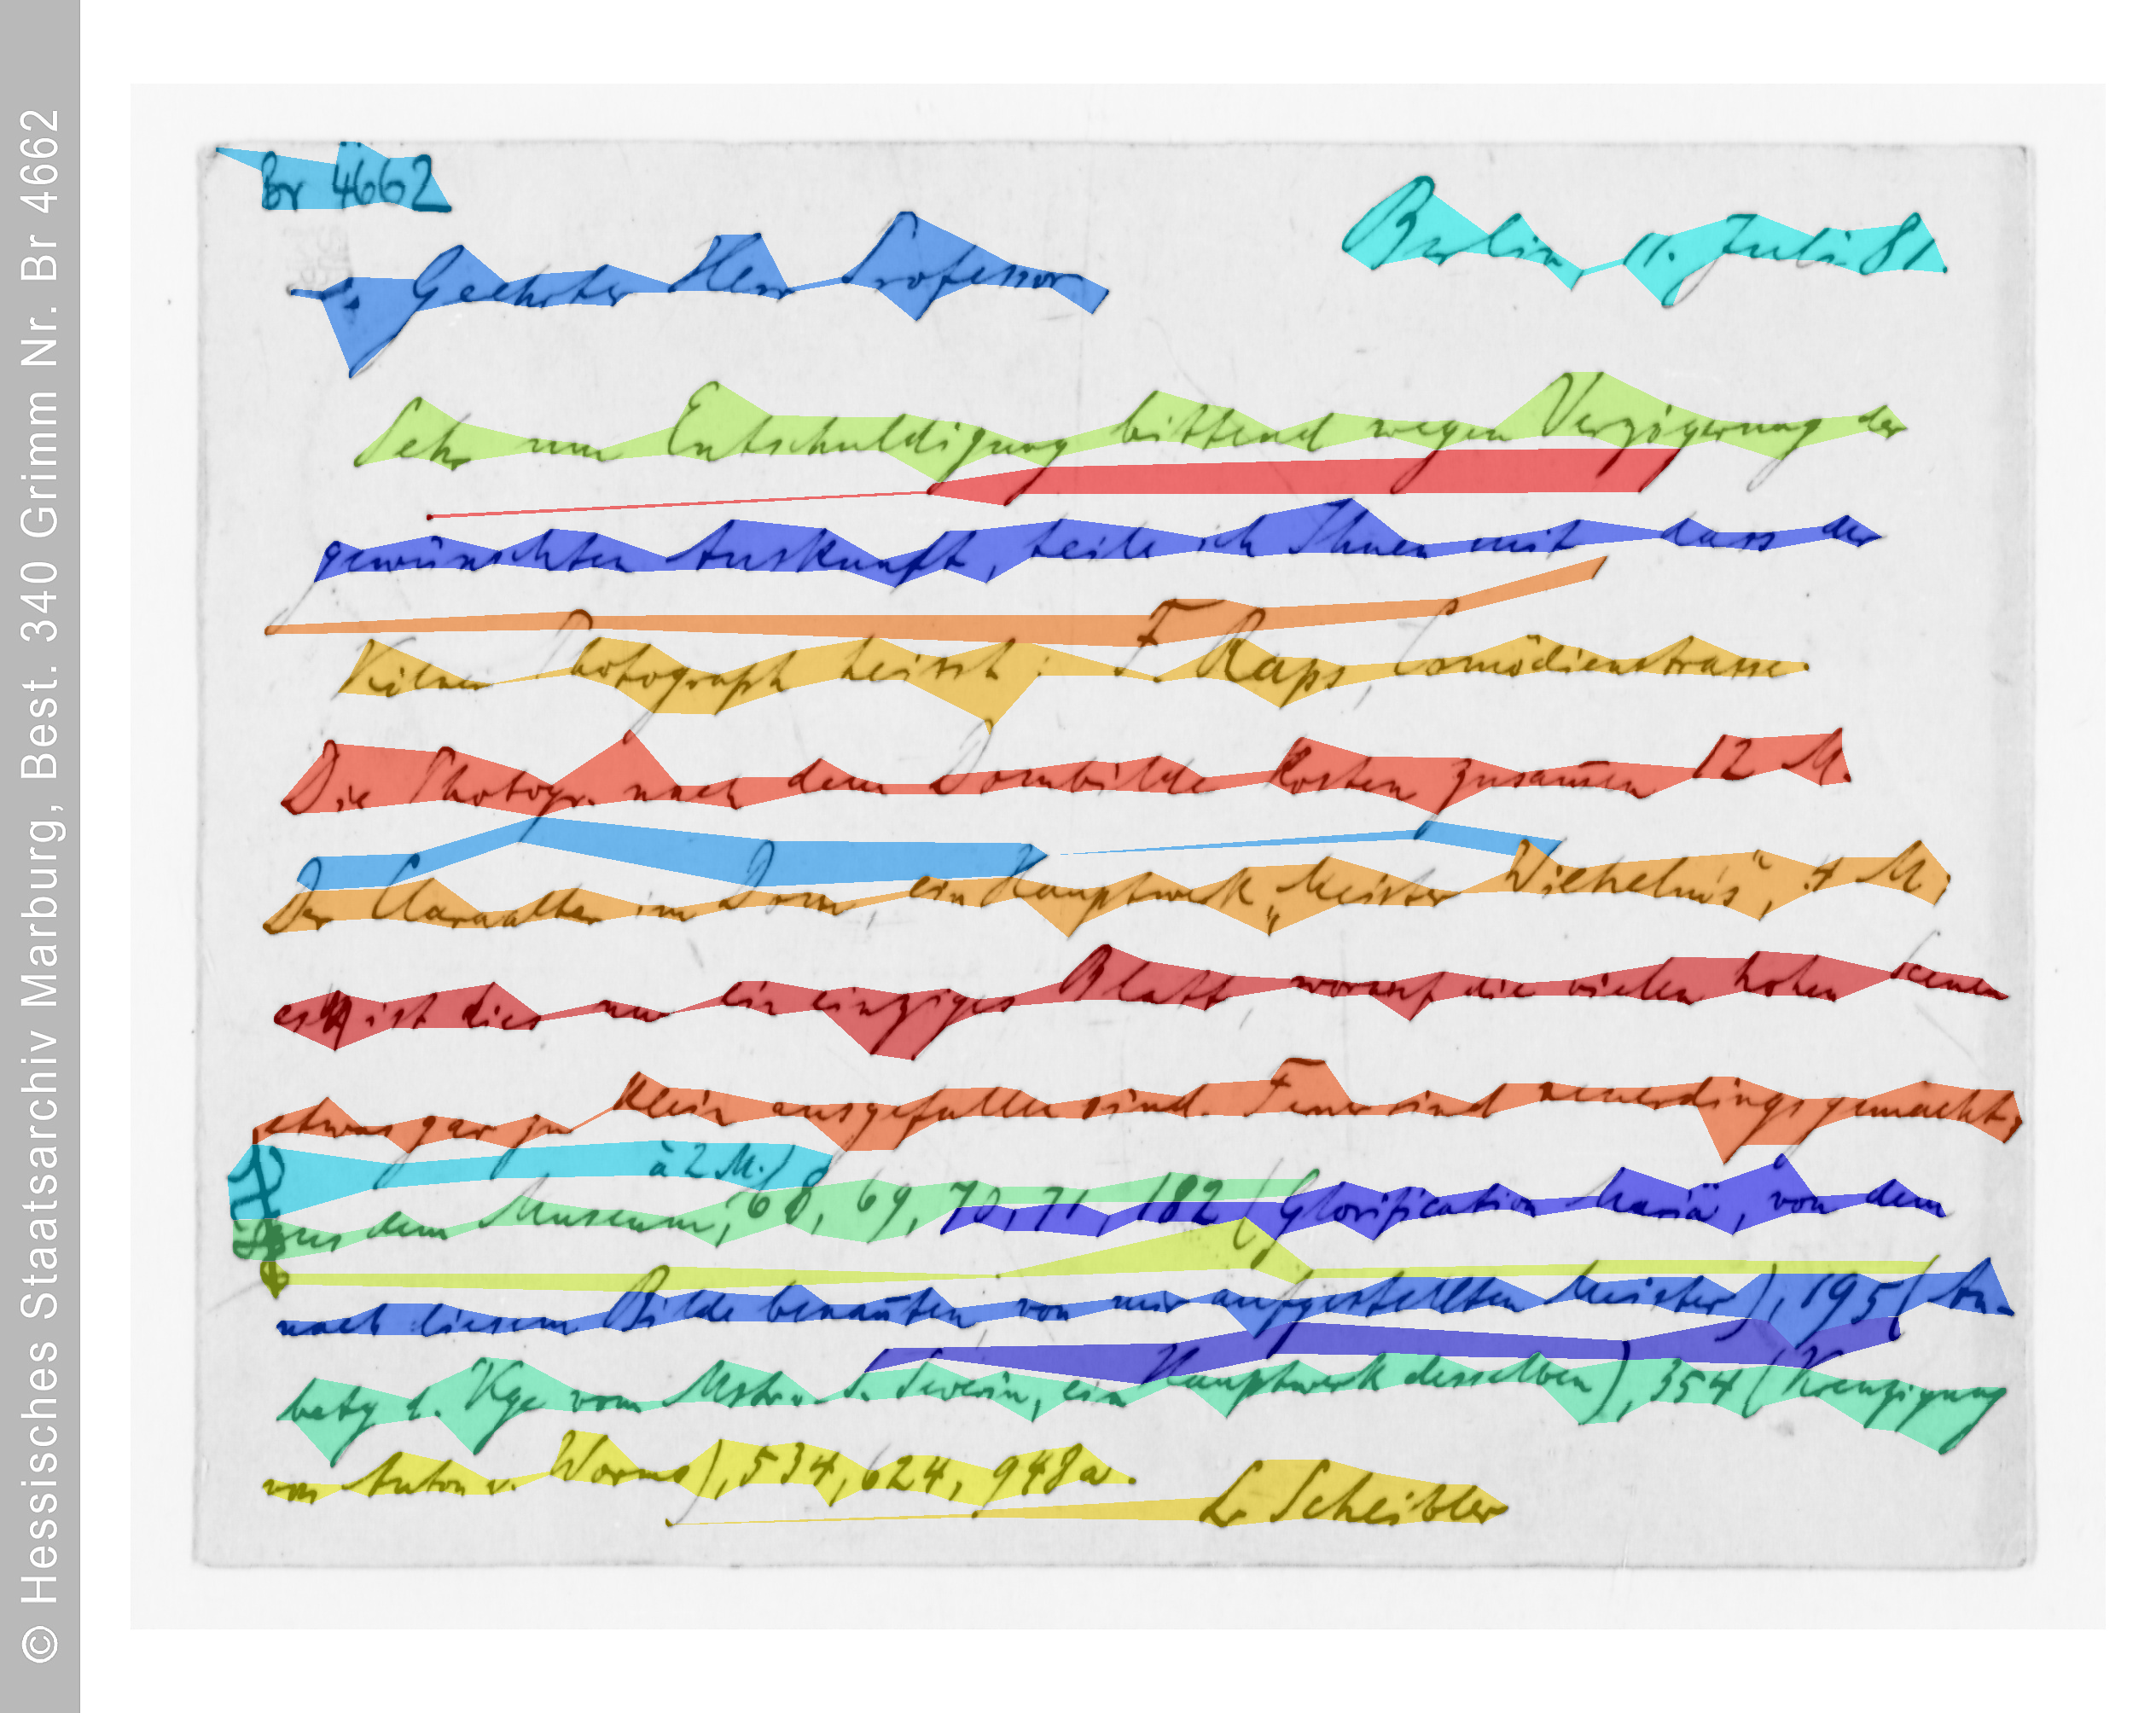 © Hessisches Staatsarchiv Marburg, Best. 340 Grimm Nr. Br 4662
Br 4662
Berlin, 11. Juli 81.
Geehrter Herr Professor
Sehr um Entschuldigung bittend wegen Verzögerung der
gewünschten Auskunft, teile ich Ihnen mit dass der
Kölner Photograph heisst: F. Raps, Comödienstrasse.
Die Photogr. nach dem Dombilde kosten zusam̄en 12 M.
Der Claraaltar im Dom, ein Hauptwerk „Meister Wilhelms", 4 M;
es ist dies nur ein einziges Blatt worauf die vielen hohen Scenen
etwas gar zu klein ausgefallen sind. Ferner sind neuerdings gemacht,
à 2 M./
aus dem Museum, 68, 69, 70, 71, 182 (Glorification Mariä, von dem
nach diesem Bilde benan̄ten von mir aufgestellten Meister), 195 (An-
betg d. Kge vom Mstr v. S. Severin, ein Hauptwerk desselben), 354 (Kreuzigung
von Anton v. Worms), 534, 624, 948a.
L. Scheibler